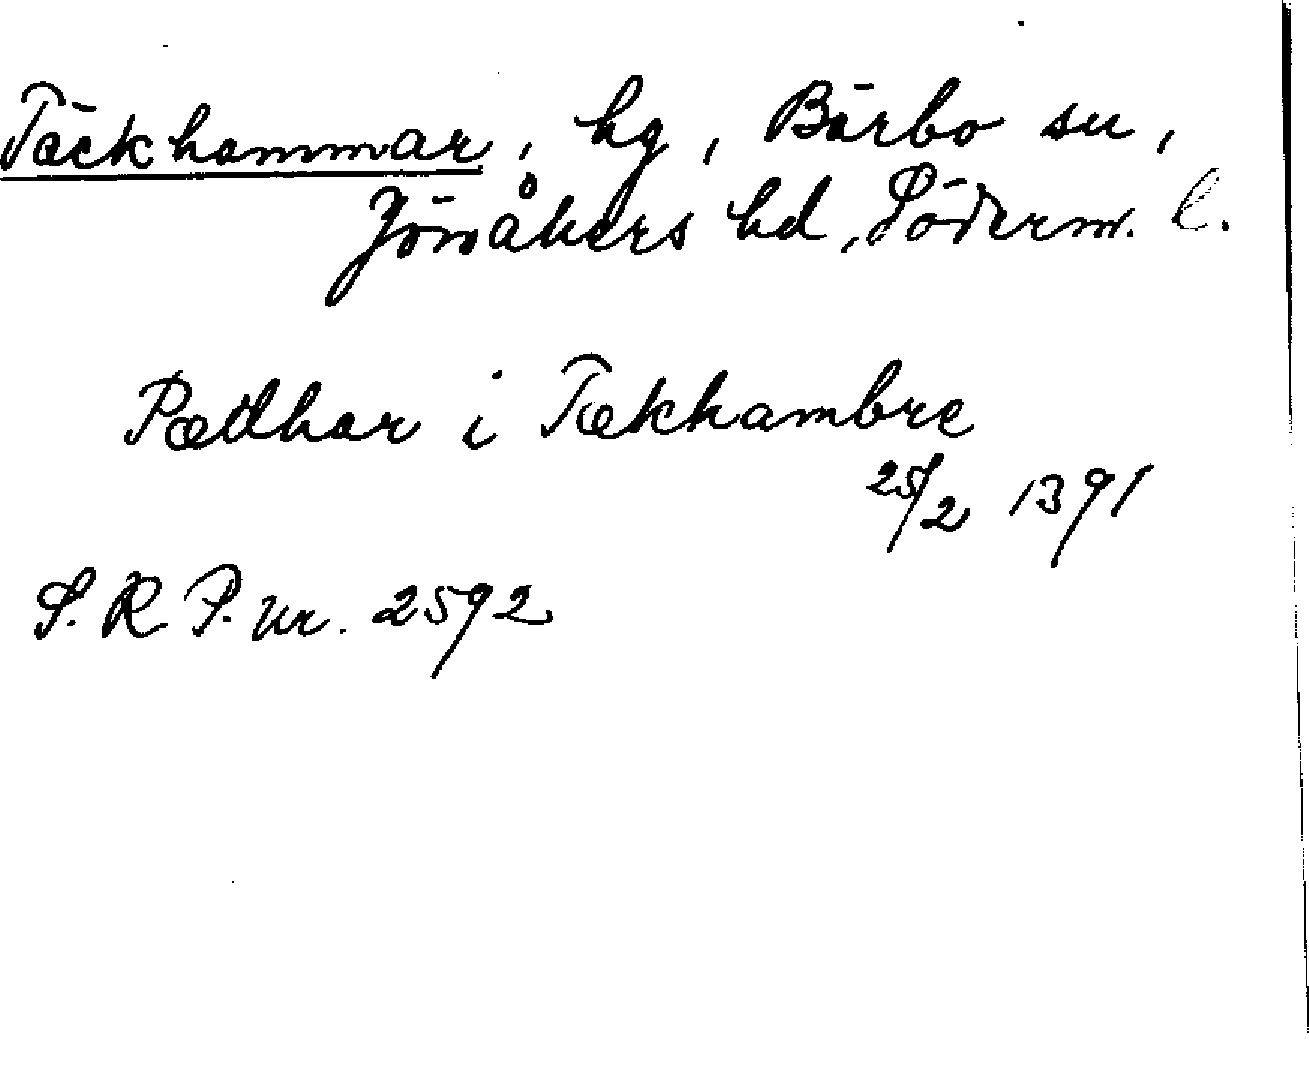 Täckhammar, hg, Bärbo sn,
Jönåkers hd, Söderm. l.
Pædhar i Tækhambre
25/2 1391
S. R. P. nr. 2592